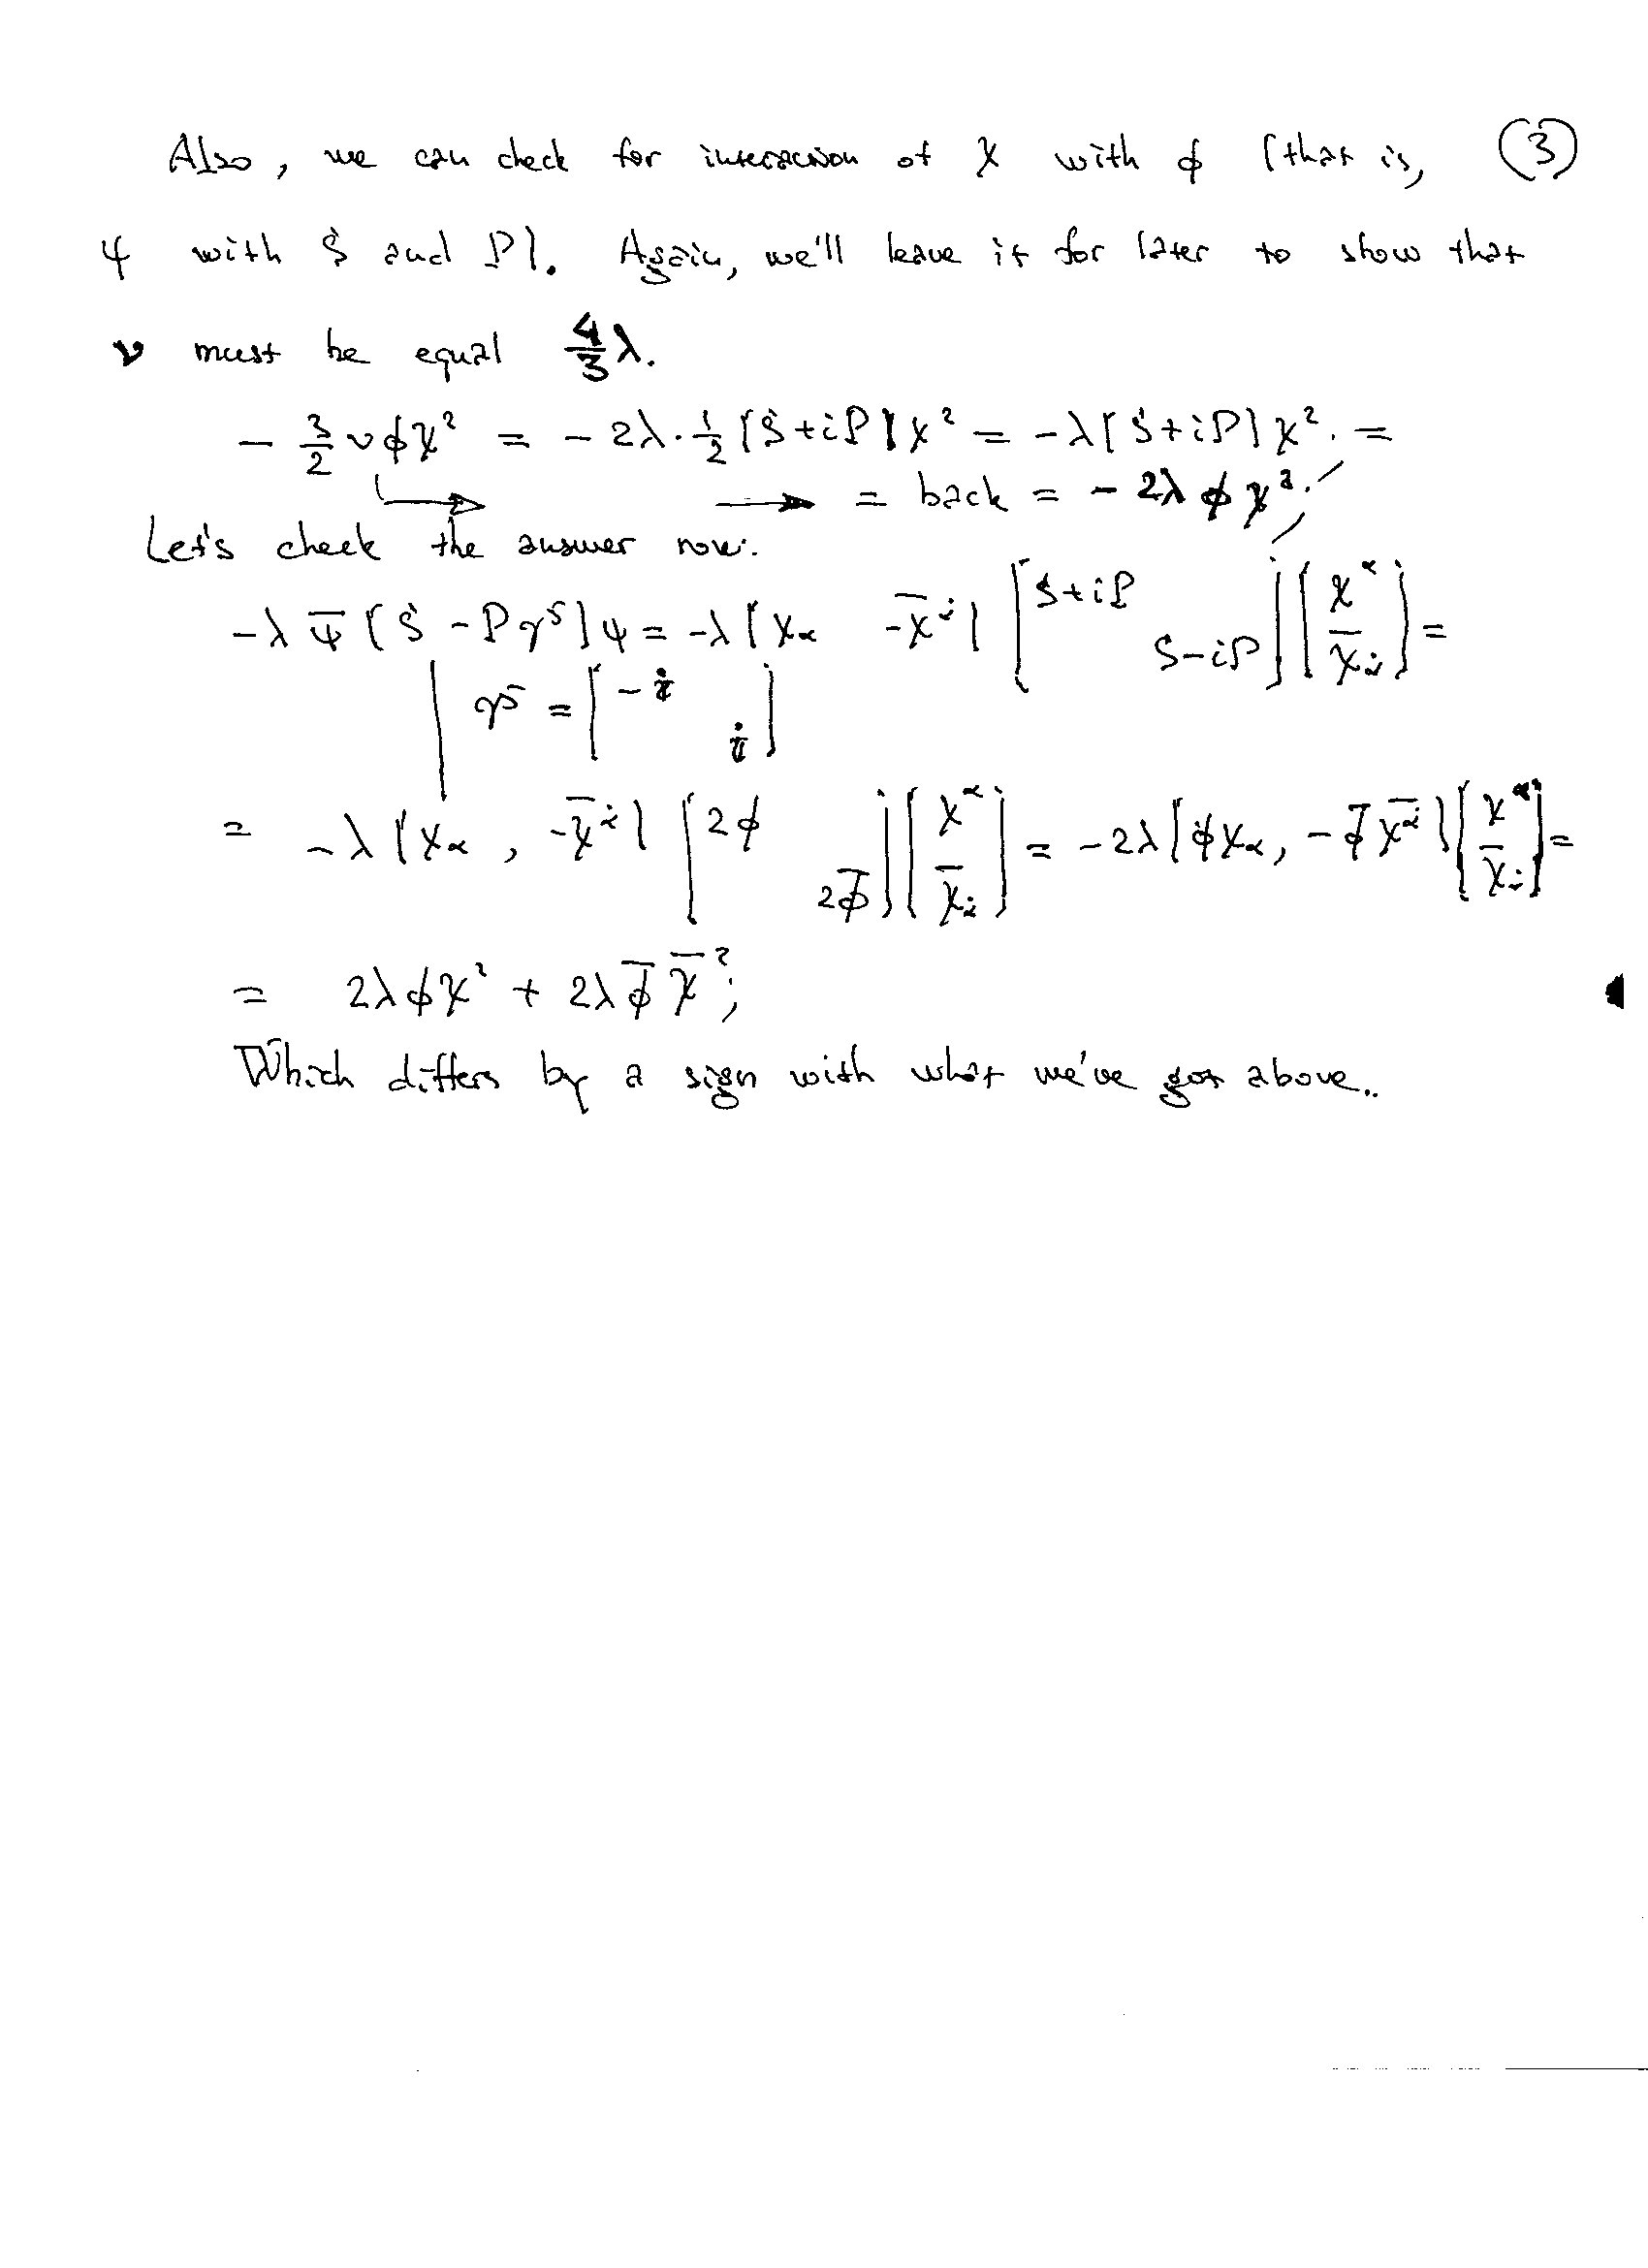 Also, we can check for interaction of χ with ϕ (that is, (3)
ψ with S and P). Again, we'll leave it for later to show that
ν must be equal 4/3 λ.
- 3/2 ν ϕ χ² = - 2λ · 1/2 (S + iP) χ² = - λ (S + iP) χ². =
→ → = back = - 2λ ϕ χ².
Let's check the answer now.
- λ ψ̄ (S - P γ⁵) ψ = - λ (χ_α -χ̄^α̇) [S+iP S-iP] [χ^α χ̄_α̇] =
| γ⁵ = [-i i]
= - λ (χ_α , -χ̄^α̇) [2ϕ 2ϕ̄] [χ^α χ̄_α̇] = - 2λ (ϕχ_α, - ϕ̄ χ̄^α̇) [χ^α χ̄_α̇] =
= 2λϕχ² + 2λ ϕ̄ χ̄²;
Which differs by a sign with what we've got above..